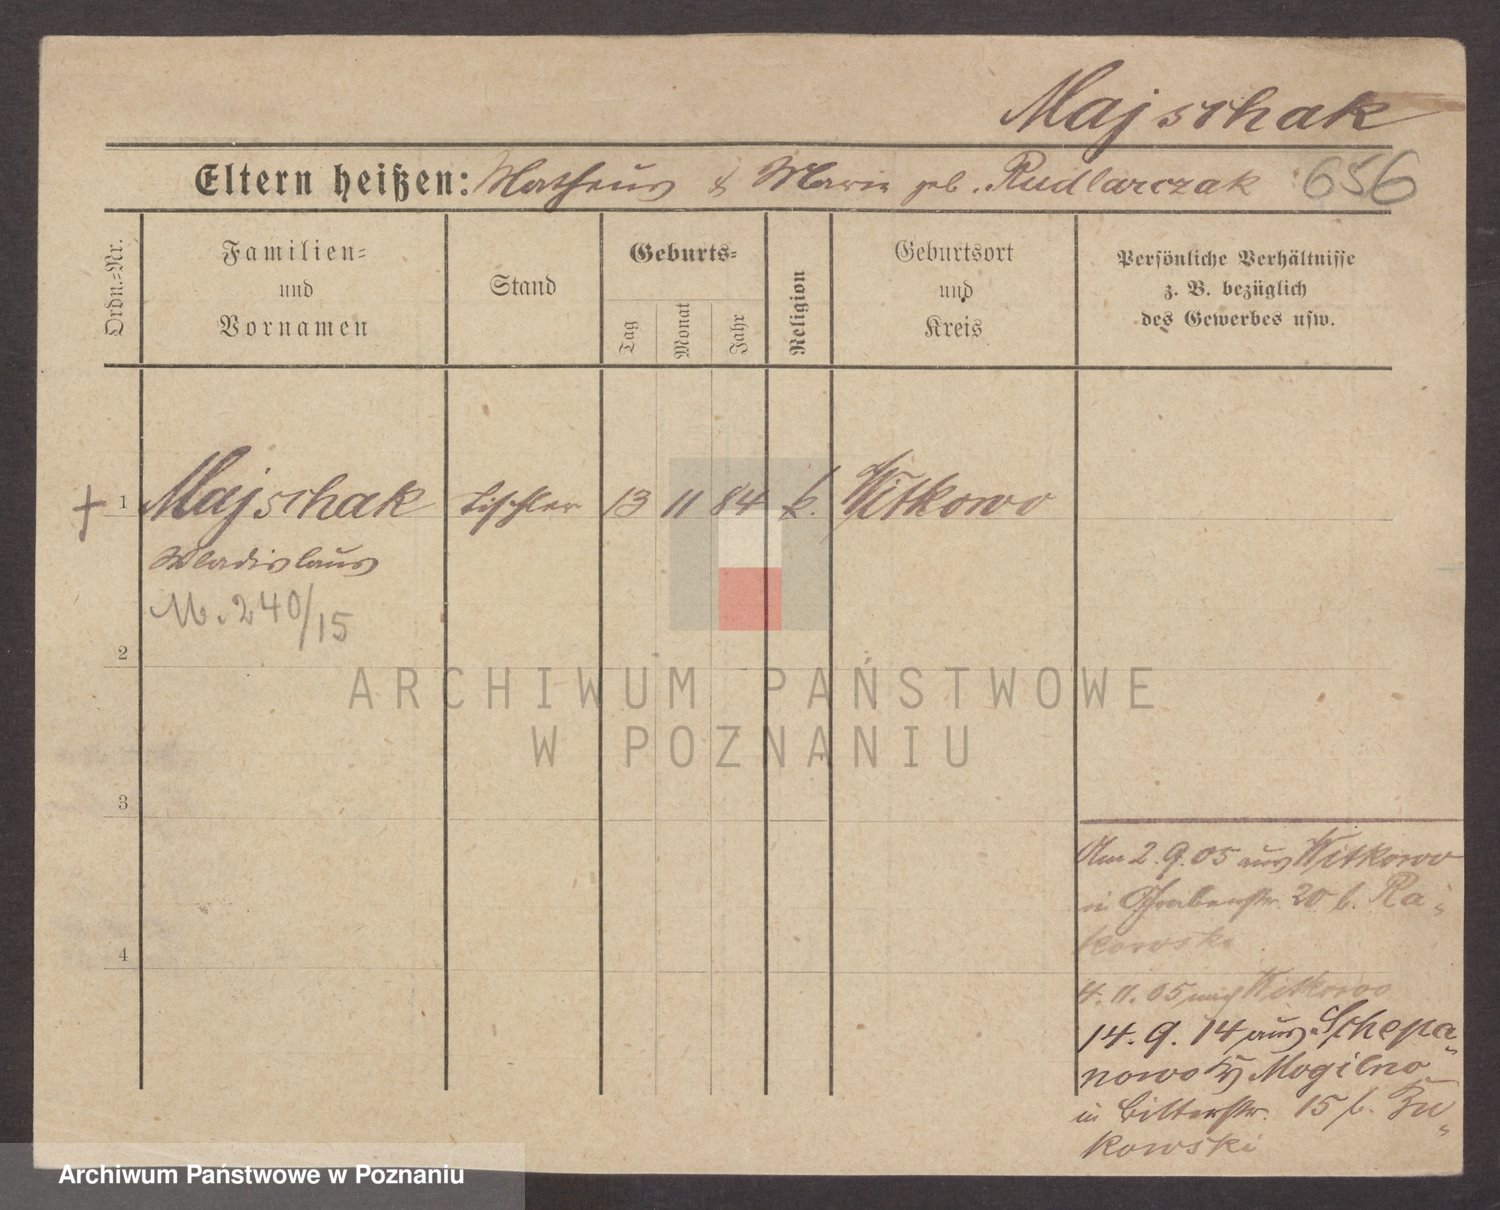 Majschak
Eltern heißen: Matheus & Marie geb. Rudlarczak 656
Ordn.-Nr.
Familien-
und
Vornamen
Stand
Geburts-
Tag
Monat
Jahr
Religion
Geburtsort
und
Kreis
Persönliche Verhältnisse
z. B. bezüglich
des Gewerbes usw.
† 1 Majschak Tischler 13 11 84 k. Witkowo
Wladislaus
M. 240/15
2
3
4
Am 2.9.05 aus Witkowo
in Grabenstr. 20 b. Ra-
kowski
4.11.05 nach Witkowo
14.9.14 aus Schepa-
nowo Kr Mogilno
in Bitterstr. 15 b. Zu-
kowski
ARCHIWUM PAŃSTWOWE
W POZNANIU
Archiwum Państwowe w Poznaniu